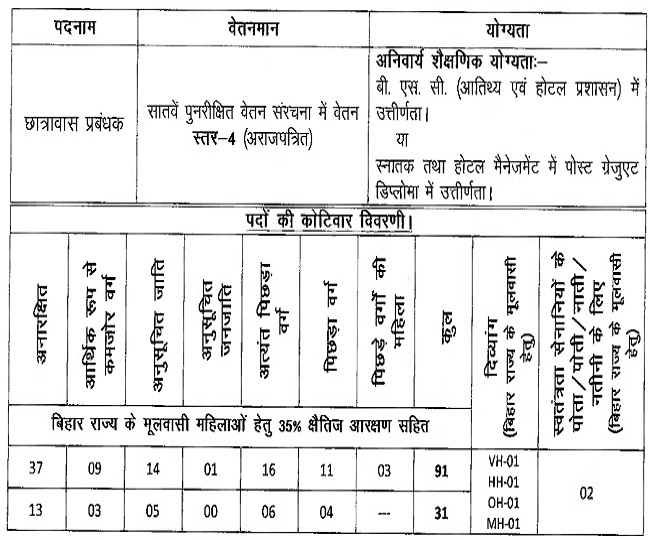 पदनाम वेतनमान योग्यता
छात्रावास प्रबंधक
सातवें पुनरीक्षित वेतन संरचना में वेतन
स्तर–4 (अराजपत्रित)
अनिवार्य शैक्षणिक योग्यताः–
बी. एस. सी. (आतिथ्य एवं होटल प्रशासन) में
उत्तीर्णता।
या
स्नातक तथा होटल मैनेजमेंट में पोस्ट ग्रेजुएट
डिप्लोमा में उत्तीर्णता।
पदों की कोटिवार विवरणी।
अनारक्षित
आर्थिक रूप से
कमजोर वर्ग
अनुसूचित जाति
अनुसूचित
जनजाति
अत्यंत पिछड़ा
वर्ग
पिछड़ा वर्ग
पिछड़े वर्गों की
महिला
कुल
दिव्यांग
(बिहार राज्य के मूलवासी
हेतु)
स्वतंत्रता सेनानियों के
पोता/पोती/नाती/
नतीनी के लिए
(बिहार राज्य के मूलवासी
हेतु)
बिहार राज्य के मूलवासी महिलाओं हेतु 35% क्षैतिज आरक्षण सहित
37 09 14 01 16 11 03 91
13 03 05 00 06 04 --- 31
VH-01
HH-01
OH-01
MH-01
02